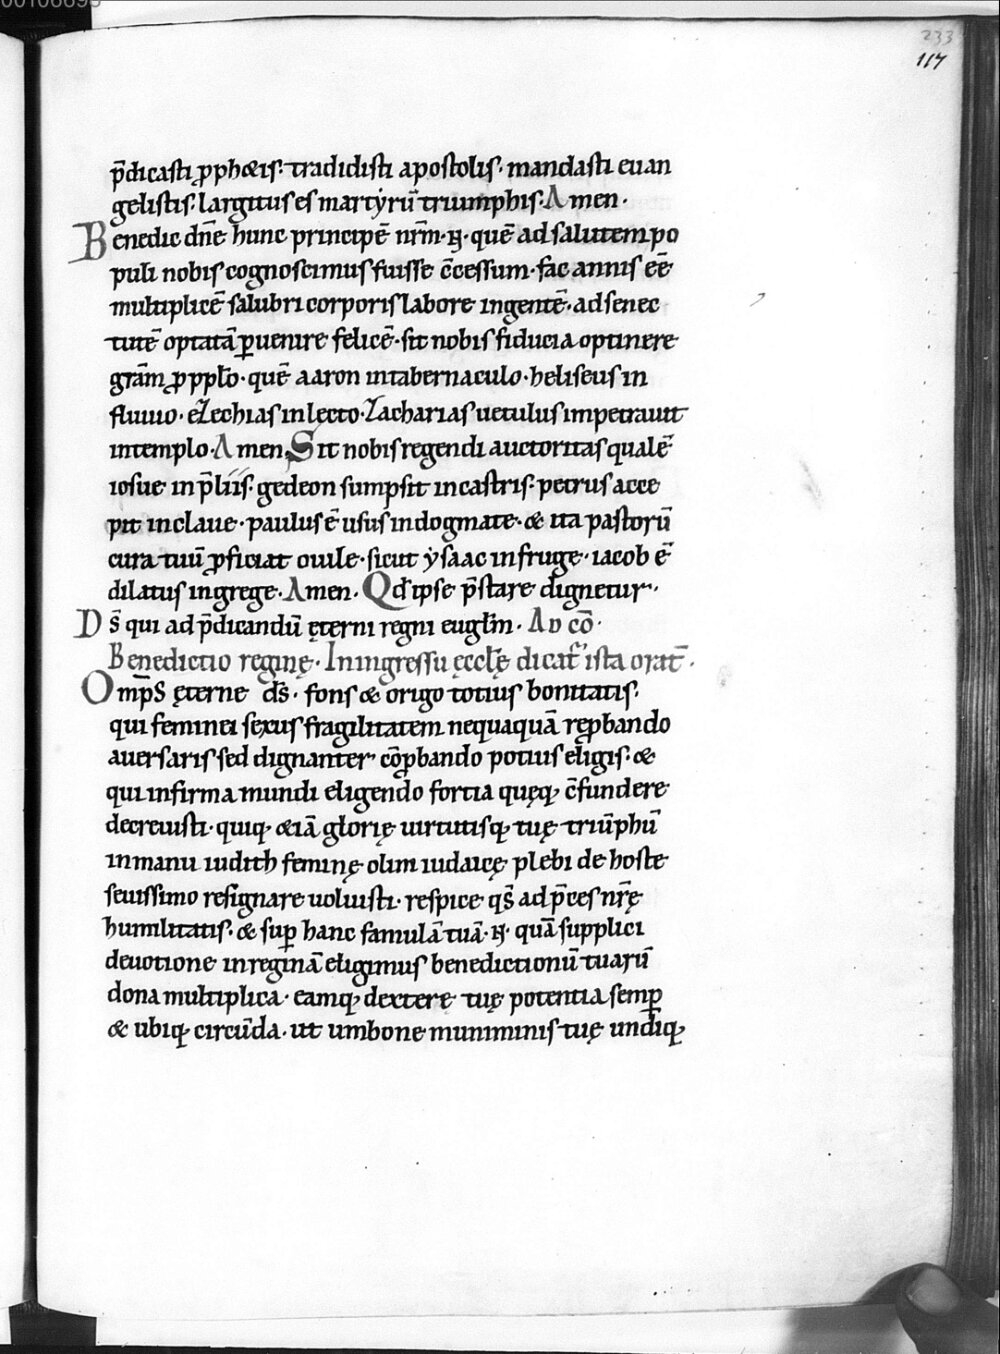 00106693
233
117
p̄dicasti ꝓph&is· tradidisti apostolis· mandasti euan
gelistis· largitus es martẏrū triumphis· Amen·
Benedic dn̄e hunc principē nr̄m· N· quē ad salutem po
puli nobis cognoscimus fuisse c̄cessum· fac annis eē
multiplicē salubri corporis labore ingentē· ad senec
tutē optatā ꝑuenire felicē· sit nobis fiducia optinere
grām ꝓ pplo· quē aaron in tabernaculo· heliseus in
fluuio· eZechias in lecto· Zacharias uetulus impetrauit
in templo· Amen. Sit nobis regendi auctoritas qualē
iosue in p̄liis· gedeon sumpsit in castris· petrus acce
pit in claue· paulus ē usus in dogmate· & ita pastorū
cura tuū ꝓficiat ouile· sicut ẏsaac in fruge· iacob ē
dilatus in grege· Amen· Qd ipse p̄stare dignetur·
Ds̄ qui ad p̄dicandū ęterni regni eugłm· AD CŌ·
Benedictio reginę· In ingressu ęccłę dicat̄ ista orat̄·
Omp̄s ęterne ds̄· fons & origo totius bonitatis·
qui feminei sexus fragilitatem nequaquā reꝓbando
auersaris sed dignanter cōꝓbando potius eligis· &
qui infirma mundi eligendo fortia quęq; c̄fundere
decreuisti· quiq; &iā glorię uirtutisq; tuę triūphū
in manu iudith feminę olim iudaicę plebi de hoste
seuissimo resignare uoluisti· respice qs̄ ad p̄ces nr̄ę
humilitatis· & suꝑ hanc famulā tuā· N· quā supplici
deuotione in reginā eligimus benedictionū tuarū
dona multiplica· eamq; dexterę tuę potentia semꝑ
& ubiq; circūda· ut umbone muniminis tuę undiq;